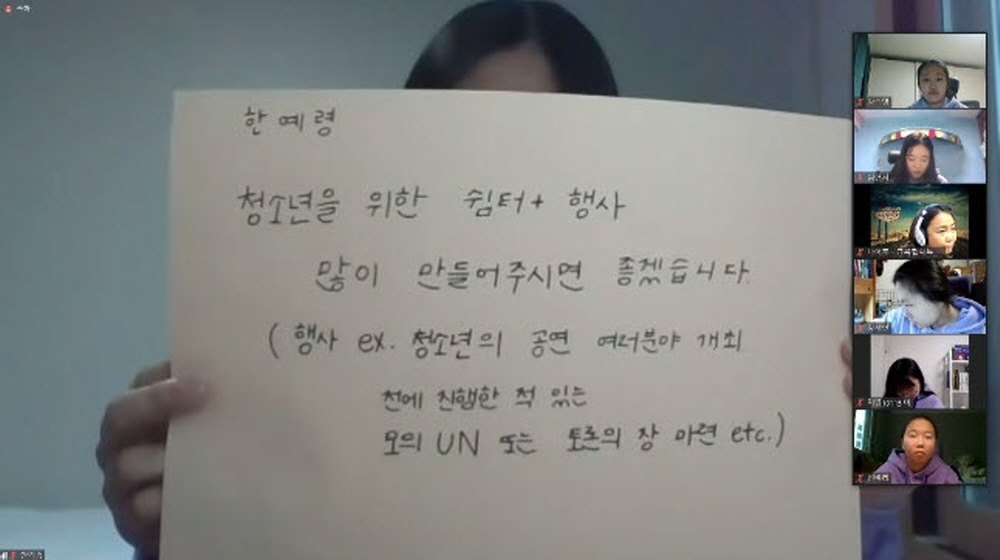 한예령
청소년을 위한 쉼터+ 행사
많이 만들어주시면 좋겠습니다.
( 행사 ex. 청소년의 공연 여러분야 개최
전에 진행한 적 있는
모의 UN 또는 토론의 장 마련 etc.)